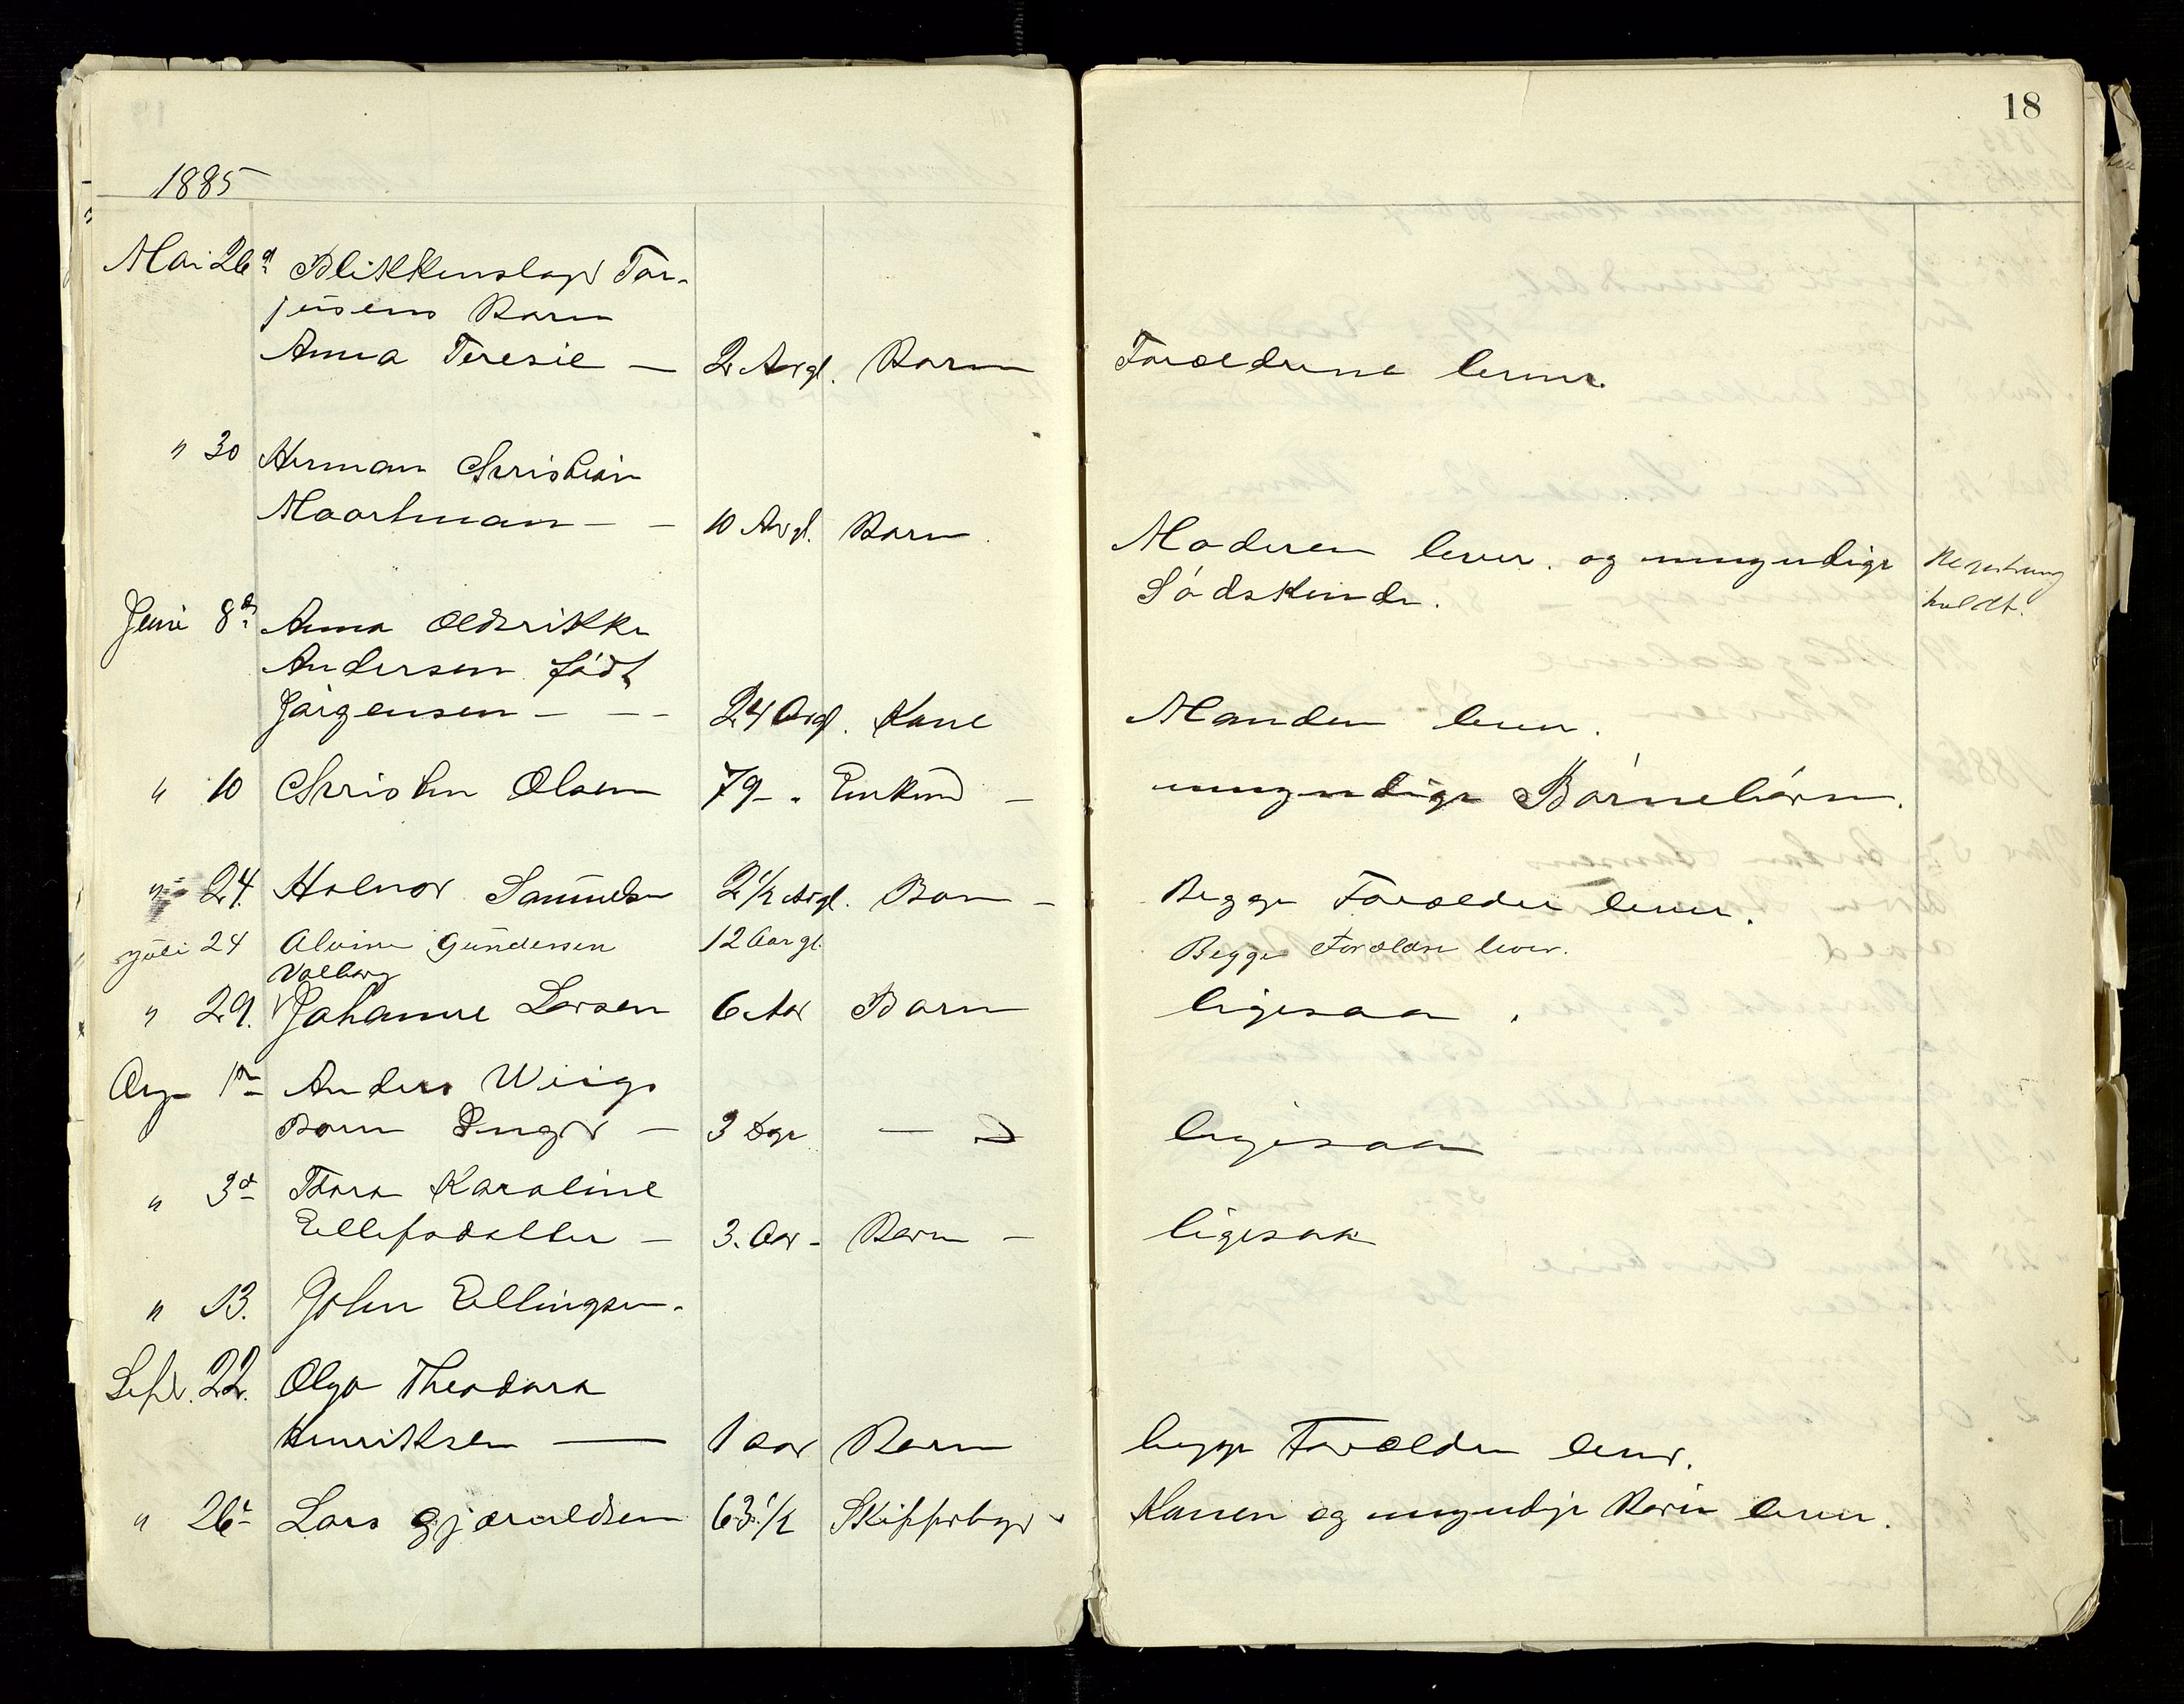 18
1885
Mai 26d Blikkenslager Tor-
jusens Barn
Anna Teresie — 2 Aargl. Barn Forældrene lever.
" 30 Herman Christian
Moortman — — 10 Aargl. Barn Moderen lever og umyndige
Södskende. holdt.
Juni 8de Anna Oldrikke
Andersen födt
Jörgensen — — 24 Aargl. Kone Manden lever.
" 10 Christen Olsen 79 — " Enkem — umyndige Börnebörn.
" 24. Halvor Samuelsen 2 1/2 Argl. Barn — Begge Forældre lever.
Juli 24 Alvine Gundersen 12 Aargl. Begge Forældre lever.
Valborg
" 29. Johanne Larsen 6 Aar Barn ligesaa.
Aug 1ste Anders Wiigs
Barn Inger — 3 Dge — ligesaa
" 3d Thora Karoline
Ellefsdatter — 3. Aar — Barn — ligesaa
" 13. John Ellingsen.
Sept. 22. Olga Theodora
Henriksen — 1 aar Barn begge Forældre lever.
" 26d Lars Gjæruldsen 63 1/2 Skipsbygr Konen og umyndige Börn lever.